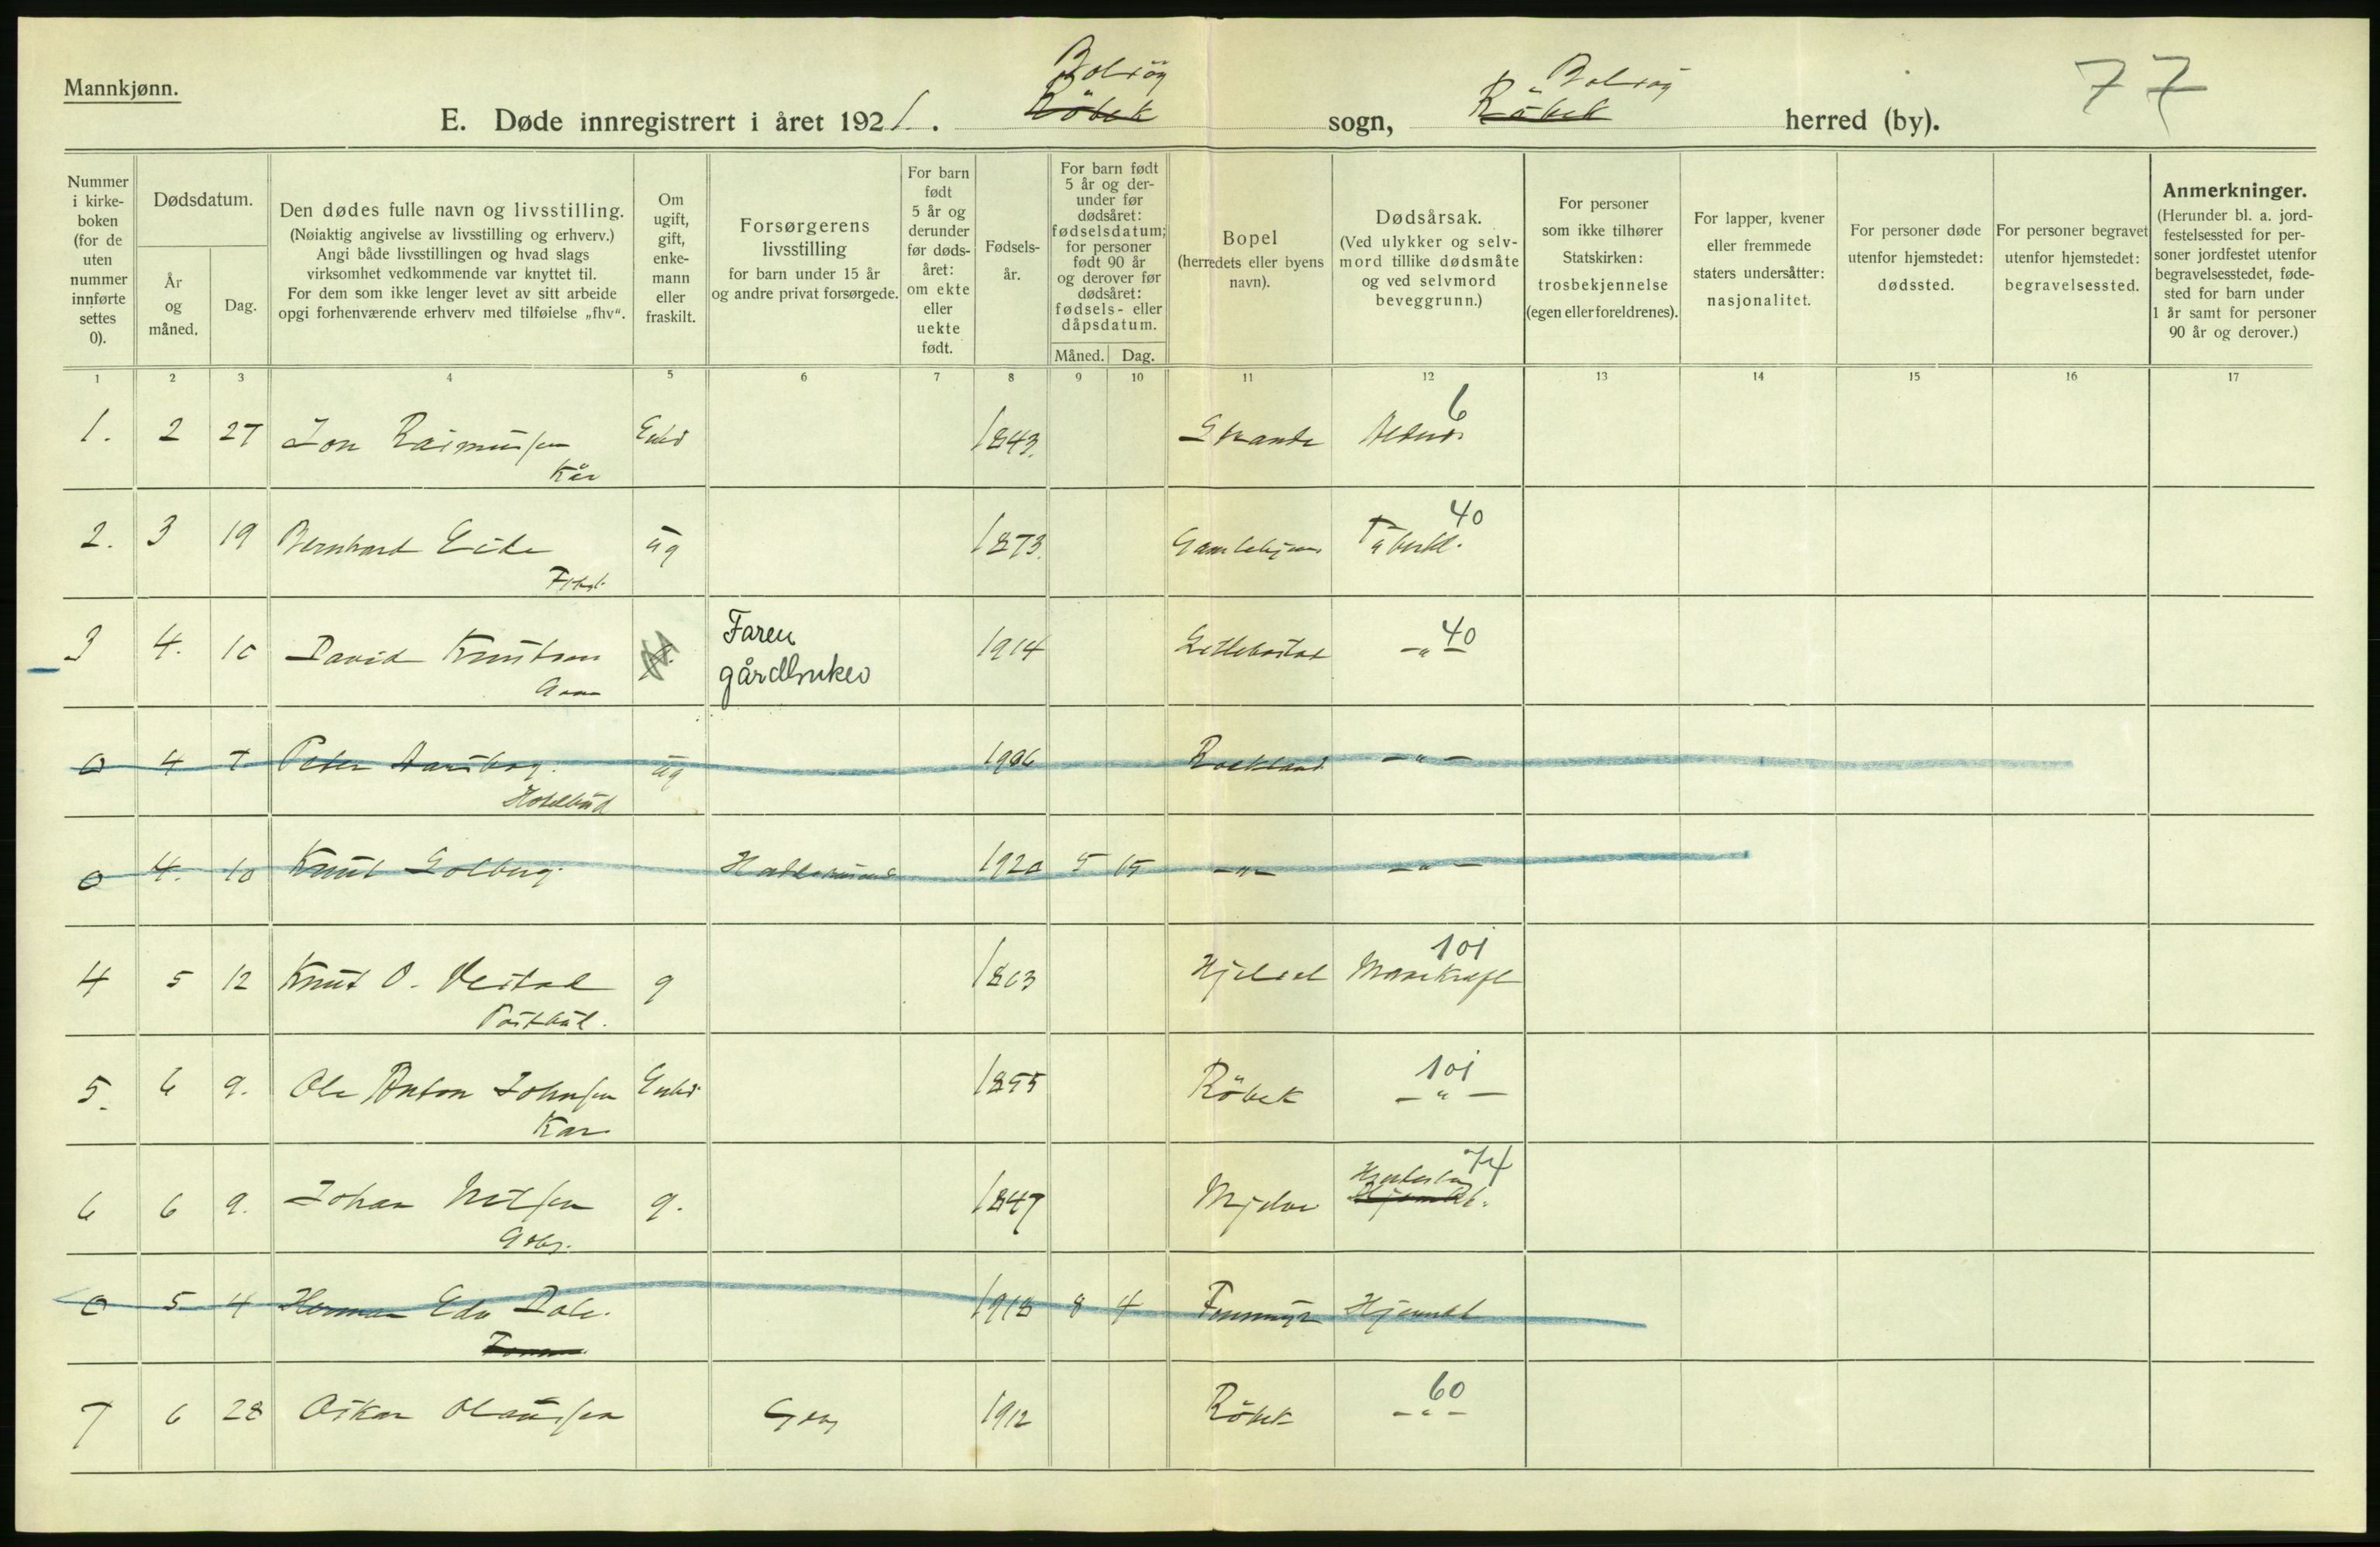 Mannkjønn.
Bolsöy Bolsöy 77
E. Døde innregistrert i året 1921. Röbek sogn, Röbek herred (by).
Nummer i kirke-boken (for de uten nummer innførte settes 0).
Dødsdatum.
År og måned.
Dag.
Den dødes fulle navn og livsstilling.
(Nøiaktig angivelse av livsstilling og erhverv.)
Angi både livsstillingen og hvad slags
virksomhet vedkommende var knyttet til.
For dem som ikke lenger levet av sitt arbeide
opgi forhenværende erhverv med tilføielse „fhv“.
Om ugift, gift, enke-mann eller fraskilt.
Forsørgerens livsstilling
for barn under 15 år
og andre privat forsørgede.
For barn født 5 år og derunder før døds-året: om ekte eller uekte født.
Fødsels-år.
For barn født 5 år og der-under før dødsåret: fødselsdatum; for personer født 90 år og derover før dødsåret: fødsels- eller dåpsdatum.
Måned. Dag.
Bopel
(herredets eller byens navn).
Dødsårsak.
(Ved ulykker og selv-mord tillike dødsmåte og ved selvmord beveggrunn.)
For personer som ikke tilhører Statskirken: trosbekjennelse (egen eller foreldrenes).
For lapper, kvener eller fremmede staters undersåtter: nasjonalitet.
For personer døde utenfor hjemstedet: dødssted.
For personer begravet utenfor hjemstedet: begravelsessted.
Anmerkninger.
(Herunder bl. a. jord-festelsessted for per-soner jordfestet utenfor begravelsesstedet, føde-sted for barn under 1 år samt for personer 90 år og derover.)
1 2 3 4 5 6 7 8 9 10 11 12 13 14 15 16 17
6
1. 2 27 Jon Rasmussen Enkd 1843. Strande
Kår
40
2. 3 19 Bernhard Eide ug 1873. Gamlehjem Tuberkl.
3 4. 10 David Knutsen Faren gårdbruker 1914 40 -"-
0 4 7 Peter ug 1906 Roekland -"-
Hotelbud
0 4. 10 Knut Solberg. 1920 5 15 -"- -"-
101
4 5 12 Knut O. g 1863 Hjelset Marekræft
101
5. 6 9. Ole Anton Johnsen Enkd 1855 Röbek -"-
Kår
74
6 6 9. Johan Nilsen g. 1847 Mjelve
Gbr.
0 5 4 Herman Edv Dale. 1918 8 4 Hjernebt
60
7 6 28 Oskar Olaussen 1912 Röbek -"-